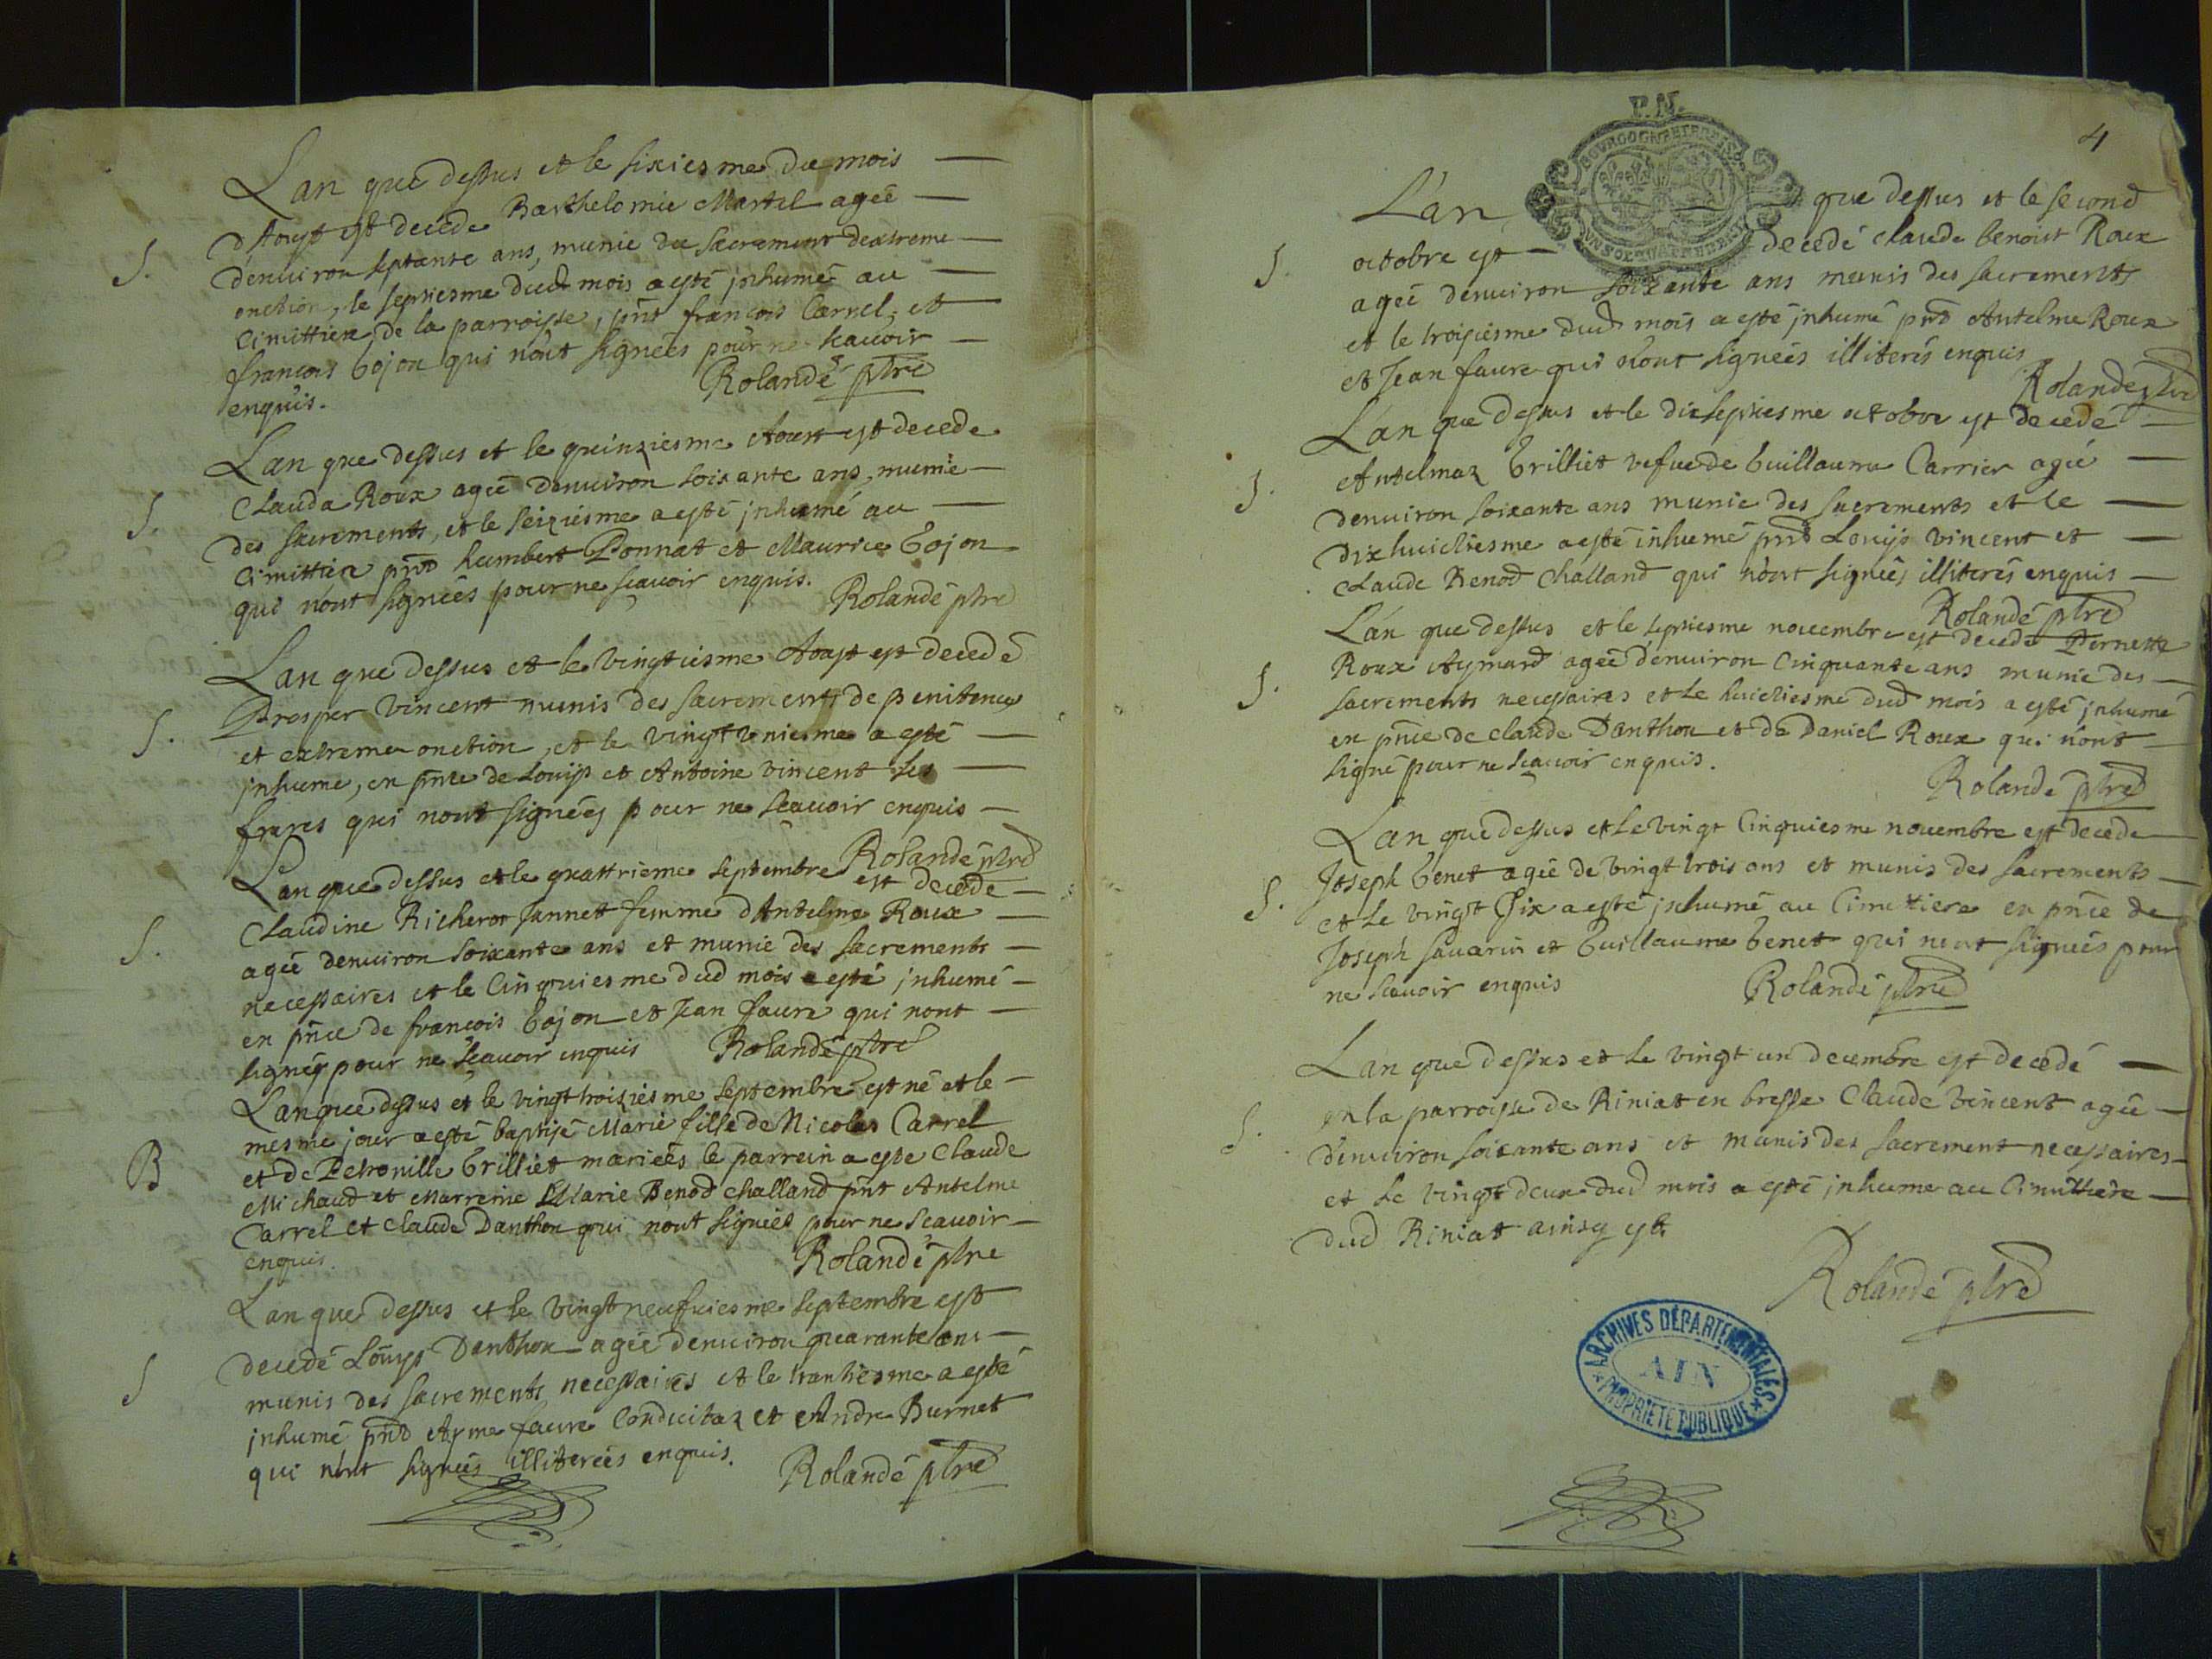 Lan que dessus et le sixiesme du mois
d'Aoust est decedé Barthelomie Martel agée
S. denuiron septante ans, munie du sacrement dextreme
onction, le septiesme dud mois a esté jnhumé au
Cimittiere, de la parroisse, pnt françois Carrel, et
françois Gojon qui nont signées pour ne scauoir
enquis. Rolande ptre
Lan que dessus et le quinziesme Aoust est decede
Clauda Roux agée denuiron soixante ans, munie
S. des sacrements, et le seiziesme a esté jnhumé au
Cimittiere pnt humbert Ponnat et Maurice Gojon
qui nont signées pour ne scauoir enquis. Rolande ptre
Lan que dessus et le vingtiesme Aoust est decedé
Prosper vincent munis des sacrements de penitence
S. et extreme onction, et le vingt vniesme a esté
jnhume, en pnce de Louijs et Antoine vincent ses
freres qui nont signées pour ne scauoir enquis
Rolande ptre
Lan que dessus et le quattrieme septembre est decede
Claudine Richerot Jannet femme d'Antelme Roux
S. agée denuiron soixante ans et munie des sacrements
necessaires et le Cinquiesme dud mois a esté jnhumé
en pnce de françois Gojon et Jean faure qui nont
signés pour ne scauoir enquis Rolande ptre
Lan que dessus et le vingt troisiesme septembre est né et le
mesme jour a esté baptisé Marie fille de Nicolas Carrel
B et de Petronille Grilliet mariées le parrein a este Claude
Michaud et Marreine Marie Benod Challand pnt Antelme
Carrel et Claude Danthon qui nont signées pour ne scauoir
enquis. Rolande ptre
Lan que dessus et le vingt neufuiesme septembre est
decedé Louys Danthon agée denuiron quarante ans
S munis des sacrements necessaires et le trantiesme a esté
jnhumé pnt Ayme faure Conduitaz et Andre Burnet
qui nont signées illiterées enquis. Rolande ptre
P.N.
4
L'an que dessus et le second
S. octobre est decedé claude benoist Roux
agée denuiron soixante ans munis des sacrements
et le troisiesme dud mois a esté jnhumé pnt Antelme Roux
et Jean faure qui nont signées illiterés enquis
Rolande ptre
L'an que dessus et le dixseptiesme octobre est decedé
S. Antelmaz Grilliet vefue de Guillaume Carrier agée
denuiron soixante ans munie des sacrements et le
dixhuictiesme a esté inhumé pnt Louijs vincent et
Claude Benod Challand qui nont signées illiterés enquis
Rolande ptre
L'an que dessus et le septiesme nouembre est decedé Pernette
S. Roux Aymard agée denuiron Cinquante ans munie des
sacrements necessaires et le huictiesme dud mois a esté jnhumé
en pnce de claude Danthon et de Daniel Roux qui nont
signé pour ne scauoir enquis.
Rolande ptre
Lan que dessus et le vingt Cinquiesme nouembre est decede
S. Joseph Genet agée de vingt trois ans et munis des sacrements
et le vingt six a esté jnhumé au Cimittiere en pnce de
Joseph sauarin et Guillaume Genet qui nont signées pour
ne scauoir enquis Rolande ptre
Lan que dessus et le vingt un decembre est decedé
S. en la parroisse de Riniat en bresse Claude vincent agée
denuiron soixante ans et munis des sacrement necessaires
et le vingt deux dud mois a esté jnhume au Cimittiere
dud Riniat ainsy est
Rolande ptre
ARCHIVES DÉPARTEMENTALES
AIN
PROPRIÉTÉ PUBLIQUE